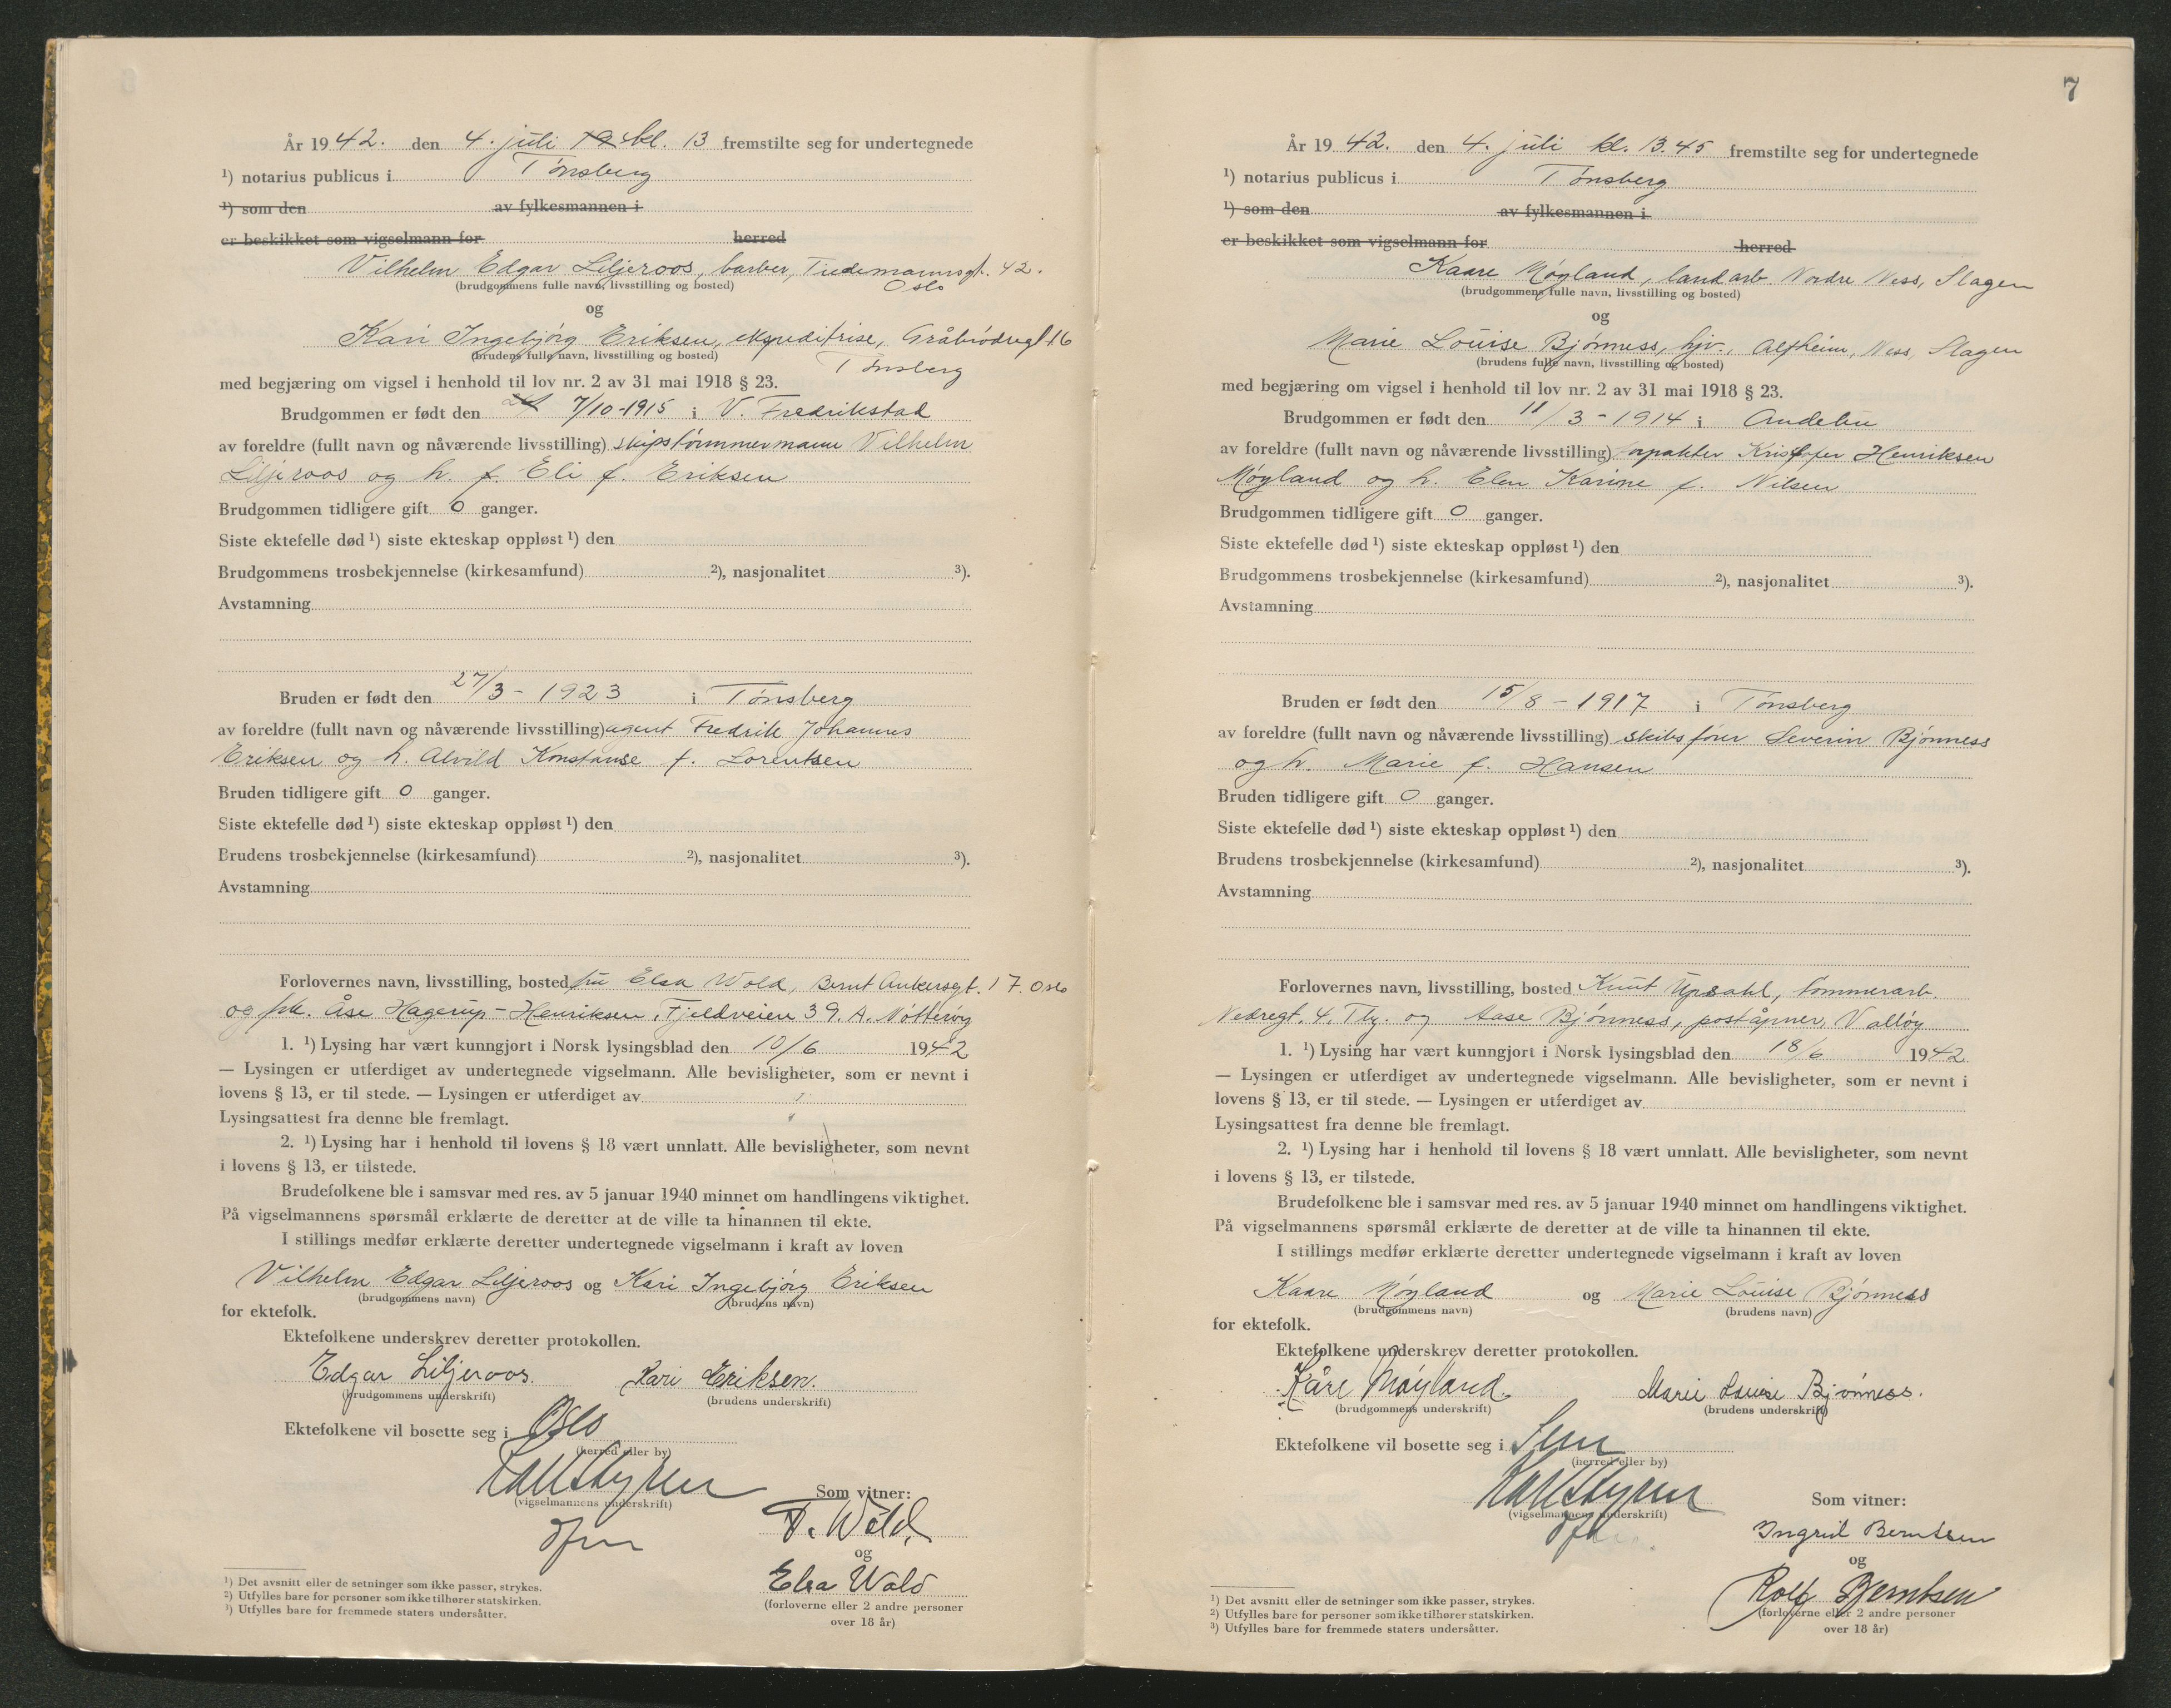 År 1942. den 4. juli 19 kl. 13 fremstilte seg for undertegnede
¹) notarius publicus i Tønsberg
¹) som den av fylkesmannen i
er beskikket som vigselmann for herred
Vilhelm Edgar Liljeroos, barber, Tiedemannsgt. 42.
Oslo
(brudgommens fulle navn, livsstilling og bosted)
og
Kari Ingebjørg Eriksen, ekspeditrise, Gråbrødregt 16
Tønsberg
(brudens fulle navn, livsstilling og bosted)
med begjæring om vigsel i henhold til lov nr. 2 av 31 mai 1918 § 23.
Brudgommen er født den 7/10-1915 i V. Fredrikstad
av foreldre (fullt navn og nåværende livsstilling) skipstømmermann Vilhelm
Liljeroos og h. f. Eli f. Eriksen
Brudgommen tidligere gift 0 ganger.
Siste ektefelle død ¹) siste ekteskap oppløst ¹) den
Brudgommens trosbekjennelse (kirkesamfund) ²), nasjonalitet ³).
Avstamning
Bruden er født den 27/3-1923 i Tønsberg
av foreldre (fullt navn og nåværende livsstilling) agent Fredrik Johannes
Eriksen og h. Alvild Konstanse f. Lorentsen
Bruden tidligere gift 0 ganger.
Siste ektefelle død ¹) siste ekteskap oppløst ¹) den
Brudens trosbekjennelse (kirkesamfund) ²), nasjonalitet ³).
Avstamning
Forlovernes navn, livsstilling, bosted fru Elsa Wold, Bernt Ankersgt. 17. Oslo
og frk. Åse Hagerup-Henriksen, Fjeldveien 39. A. Nøtterøy
1. ¹) Lysing har vært kunngjort i Norsk lysingsblad den 10/6 1942
— Lysingen er utferdiget av undertegnede vigselmann. Alle bevisligheter, som er nevnt i
lovens § 13, er til stede. — Lysingen er utferdiget av
Lysingsattest fra denne ble fremlagt.
2. ¹) Lysing har i henhold til lovens § 18 vært unnlatt. Alle bevisligheter, som nevnt
i lovens § 13, er tilstede.
Brudefolkene ble i samsvar med res. av 5 januar 1940 minnet om handlingens viktighet.
På vigselmannens spørsmål erklærte de deretter at de ville ta hinannen til ekte.
I stillings medfør erklærte deretter undertegnede vigselmann i kraft av loven
Vilhelm Edgar Liljeroos og Kari Ingebjørg Eriksen
(brudgommens navn) (brudens navn)
for ektefolk.
Ektefolkene underskrev deretter protokollen.
Edgar Liljeroos. Kari Eriksen.
(brudgommens underskrift) (brudens underskrift)
Ektefolkene vil bosette seg i Oslo
(herred eller by)
(vigselmannens underskrift)
Som vitner:
T. Wold.
og
Elsa Wold
(forloverne eller 2 andre personer
over 18 år)
¹) Det avsnitt eller de setninger som ikke passer, strykes.
²) Utfylles bare for personer som ikke tilhører statskirken.
³) Utfylles bare for fremmede staters undersåtter.
7
År 1942. den 4. juli kl. 13.45 fremstilte seg for undertegnede
¹) notarius publicus i Tønsberg
¹) som den av fylkesmannen i
er beskikket som vigselmann for herred
Kaare Møyland, landarb. Nordre Ness, Slagen
(brudgommens fulle navn, livsstilling og bosted)
og
Marie Louise Bjønness, hjv., Alfheim, Ness, Slagen
(brudens fulle navn, livsstilling og bosted)
med begjæring om vigsel i henhold til lov nr. 2 av 31 mai 1918 § 23.
Brudgommen er født den 11/3-1914 i Andebu
av foreldre (fullt navn og nåværende livsstilling) forpakter Kristoffer Henriksen
Møyland og h. Elen Karine f. Nilsen
Brudgommen tidligere gift 0 ganger.
Siste ektefelle død ¹) siste ekteskap oppløst ¹) den
Brudgommens trosbekjennelse (kirkesamfund) ²), nasjonalitet ³).
Avstamning
Bruden er født den 15/8-1917 i Tønsberg
av foreldre (fullt navn og nåværende livsstilling) skibsfører Severin Bjønness
og h. Marie f. Hansen
Bruden tidligere gift 0 ganger.
Siste ektefelle død ¹) siste ekteskap oppløst ¹) den
Brudens trosbekjennelse (kirkesamfund) ²), nasjonalitet ³).
Avstamning
Forlovernes navn, livsstilling, bosted Knut Upsahl, tømmerarb.
Nedregt. 4. Tbg. og Aase Bjønness, poståpner, Valløy
1. ¹) Lysing har vært kunngjort i Norsk lysingsblad den 18/6 1942
— Lysingen er utferdiget av undertegnede vigselmann. Alle bevisligheter, som er nevnt i
lovens § 13, er til stede. — Lysingen er utferdiget av
Lysingsattest fra denne ble fremlagt.
2. ¹) Lysing har i henhold til lovens § 18 vært unnlatt. Alle bevisligheter, som nevnt
i lovens § 13, er tilstede.
Brudefolkene ble i samsvar med res. av 5 januar 1940 minnet om handlingens viktighet.
På vigselmannens spørsmål erklærte de deretter at de ville ta hinannen til ekte.
I stillings medfør erklærte deretter undertegnede vigselmann i kraft av loven
Kaare Møyland og Marie Louise Bjønness
(brudgommens navn) (brudens navn)
for ektefolk.
Ektefolkene underskrev deretter protokollen.
Kåre Møyland. Marie Louise Bjønness.
(brudgommens underskrift) (brudens underskrift)
Ektefolkene vil bosette seg i Sem
(herred eller by)
(vigselmannens underskrift)
Som vitner:
Ingrid Berntsen
og
Rolf Berntsen
(forloverne eller 2 andre personer
over 18 år)
¹) Det avsnitt eller de setninger som ikke passer, strykes.
²) Utfylles bare for personer som ikke tilhører statskirken.
³) Utfylles bare for fremmede staters undersåtter.